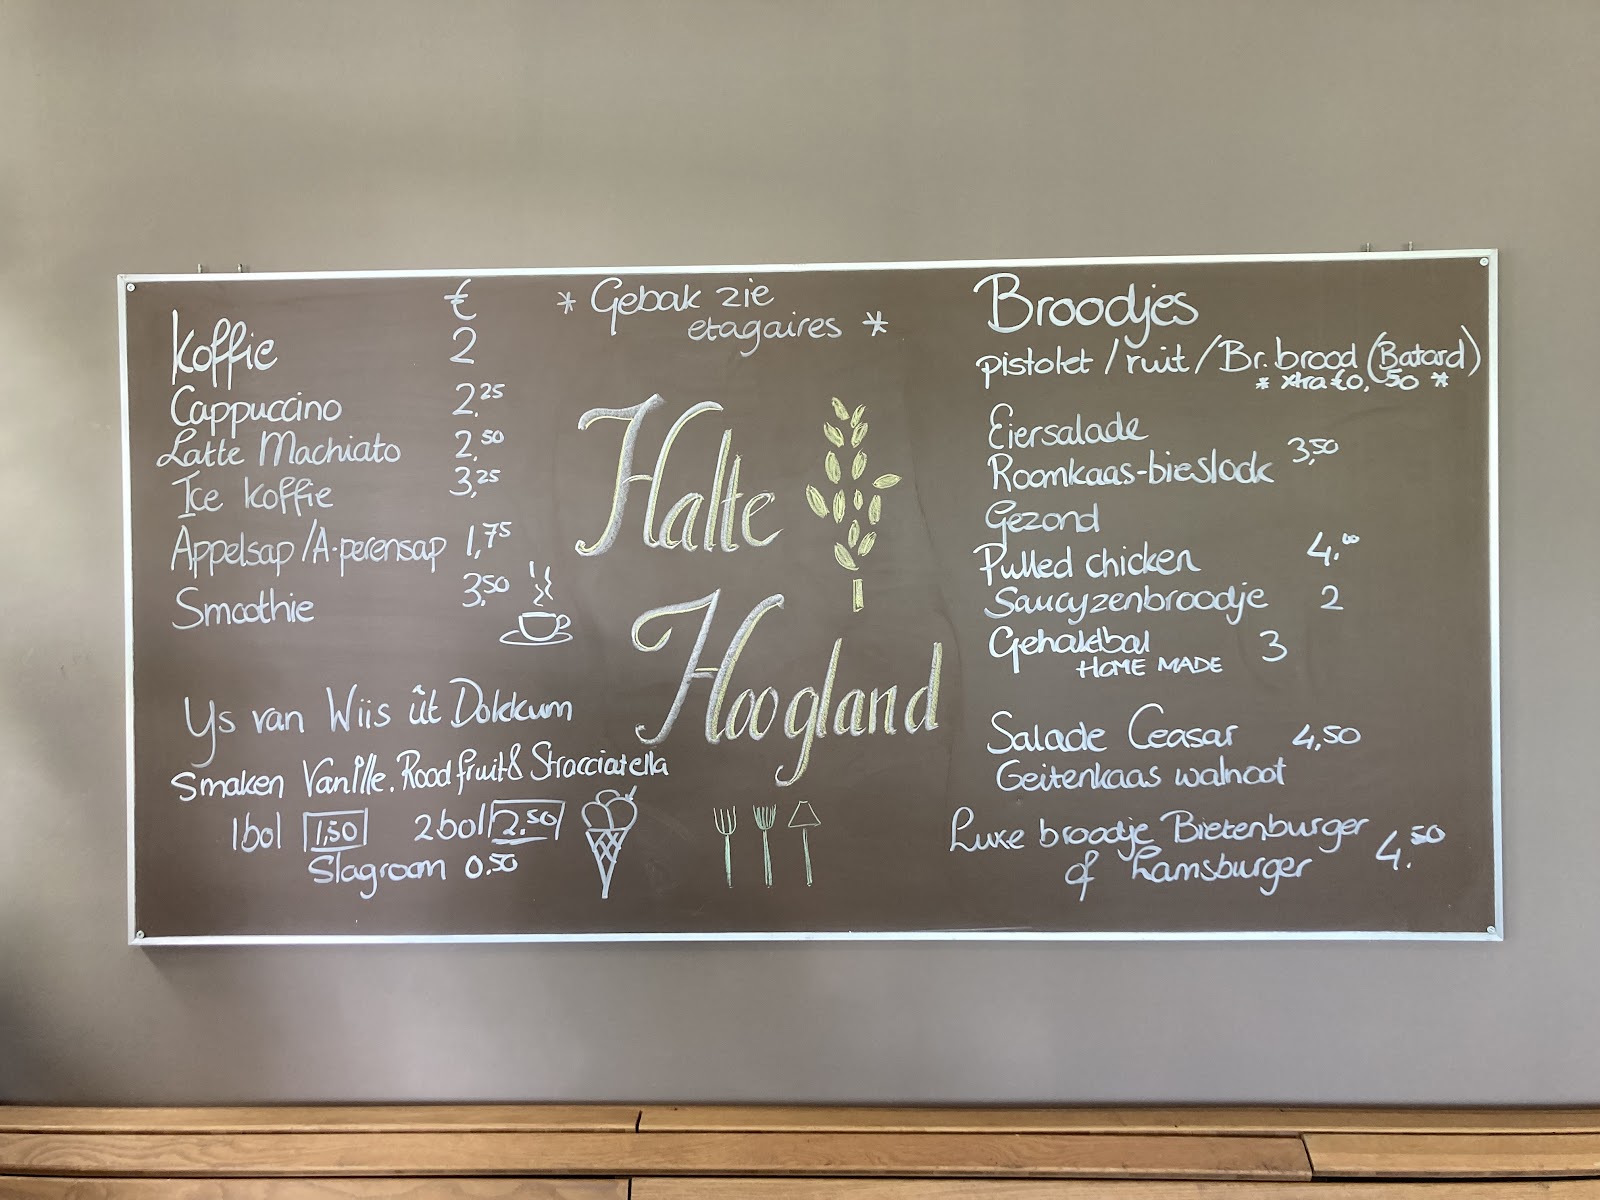 €
Koffie 2
Cappuccino 2,25
Latte Machiato 2,50
Ice koffie 3,25
Appelsap/A·perensap 1,75
Smoothie 3,50
Ys van Wiis ût Dokkum
Smaken Vanille. Rood fruit & Stracciatella
1bol 1,50 2bol 2.50
Slagroom 0.50
* Gebak zie
etagaires *
Halte
Hoogland
Broodjes
pistolet / ruit / Br. brood (Batard)
* xtra €0,50 *
Eiersalade
Roomkaas-bieslook 3,50
Gezond
Pulled chicken 4,00
Saucyzenbroodje 2
Gehaktbal 3
HOME MADE
Salade Ceasar 4,50
Geitenkaas walnoot
Luxe broodje Bietenburger
of Lamsburger 4.50